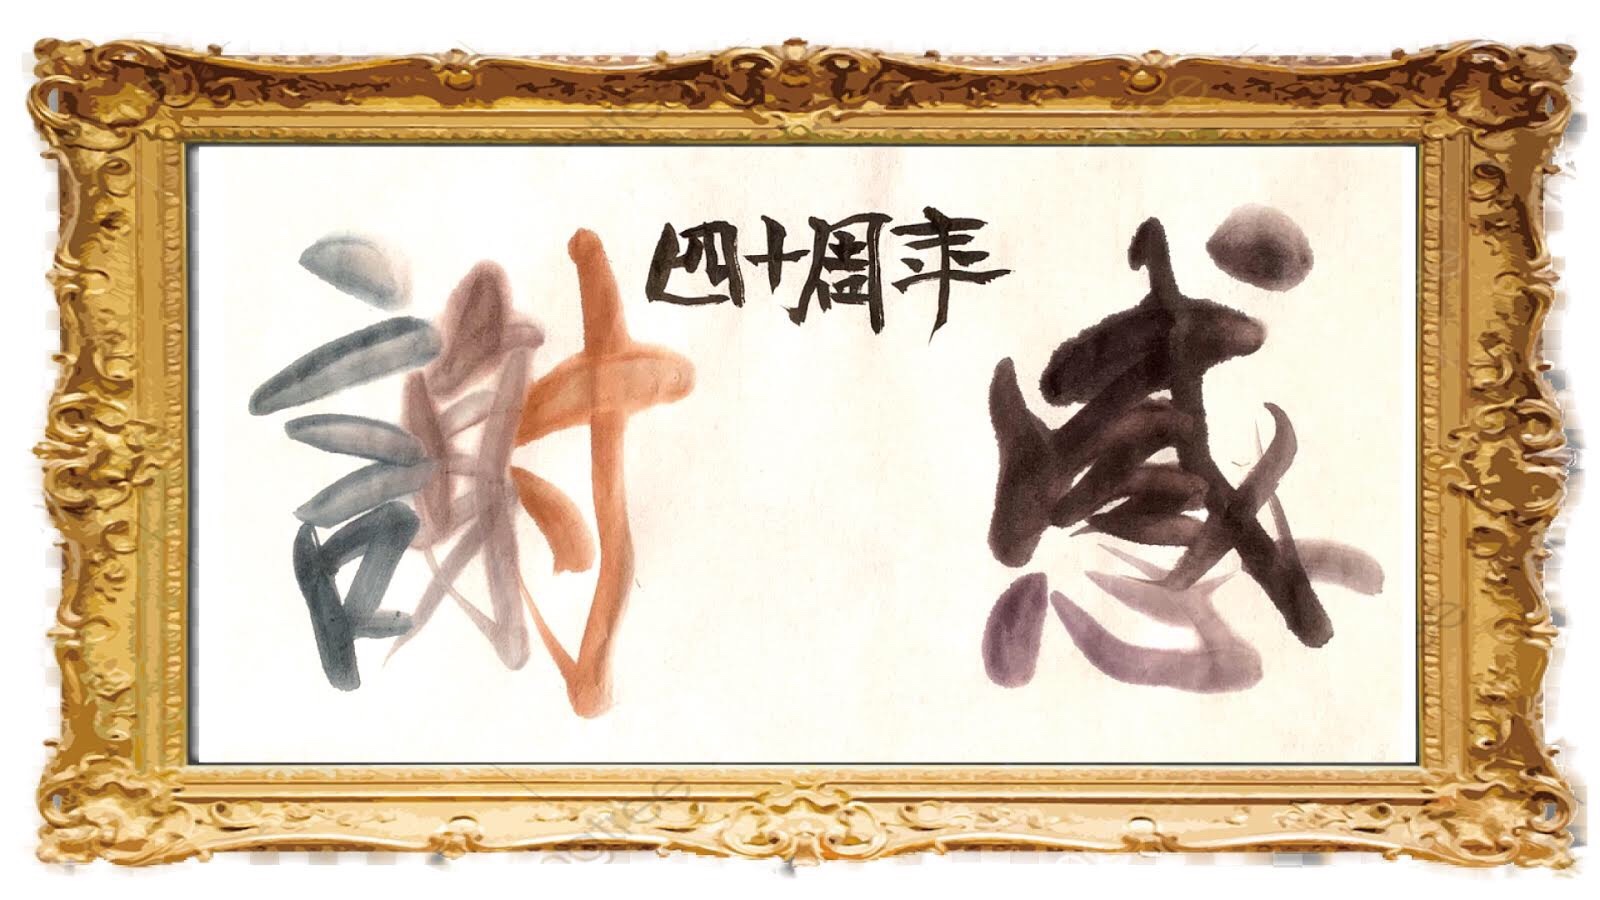 四十周年
感謝